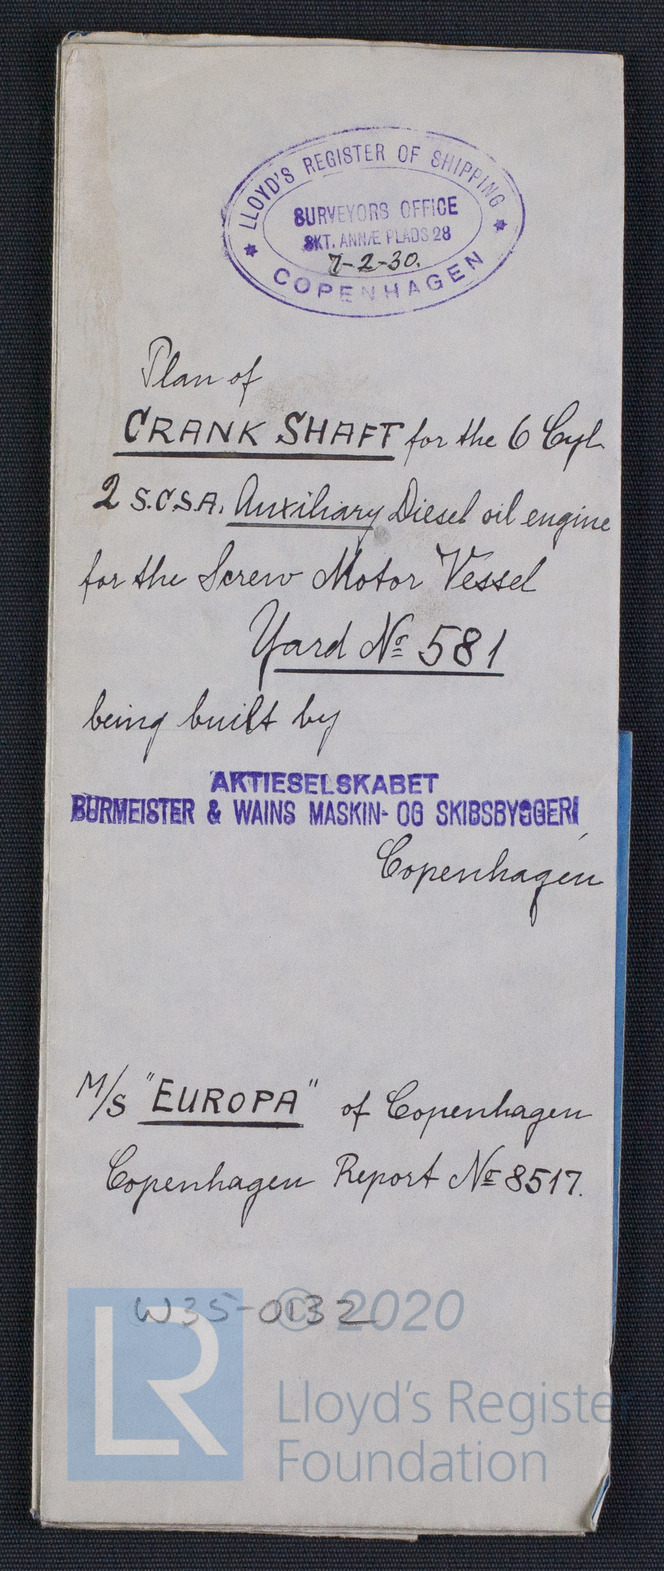 LLOYD'S REGISTER OF SHIPPING
SURVEYORS OFFICE
SKT. ANNÆ PLADS 28
7-2-30.
COPENHAGEN
Plan of
CRANK SHAFT for the 6 Cyl.
2 S.C.S.A. Auxiliary Diesel oil engine
for the Screw Motor Vessel
Yard No 581
being built by
AKTIESELSKABET
BURMEISTER & WAINS MASKIN- OG SKIBSBYGGERI
Copenhagen
M/S "EUROPA" of Copenhagen
Copenhagen Report No 8517.
W35-0132
© 2020
LR
Lloyd's Register
Foundation